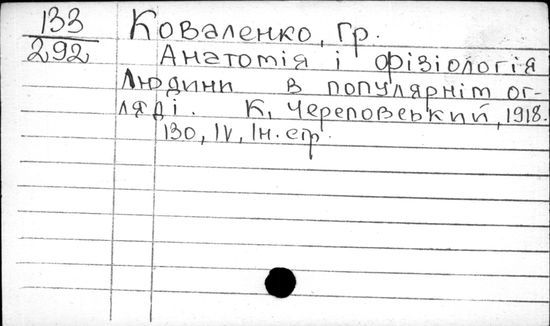 133
292
Коваленко, Гр.
Анатомія і фізіологія
людини в популярнім ог-
ляді. К, Череповський, 1918.
130, IV, Iн. стр.